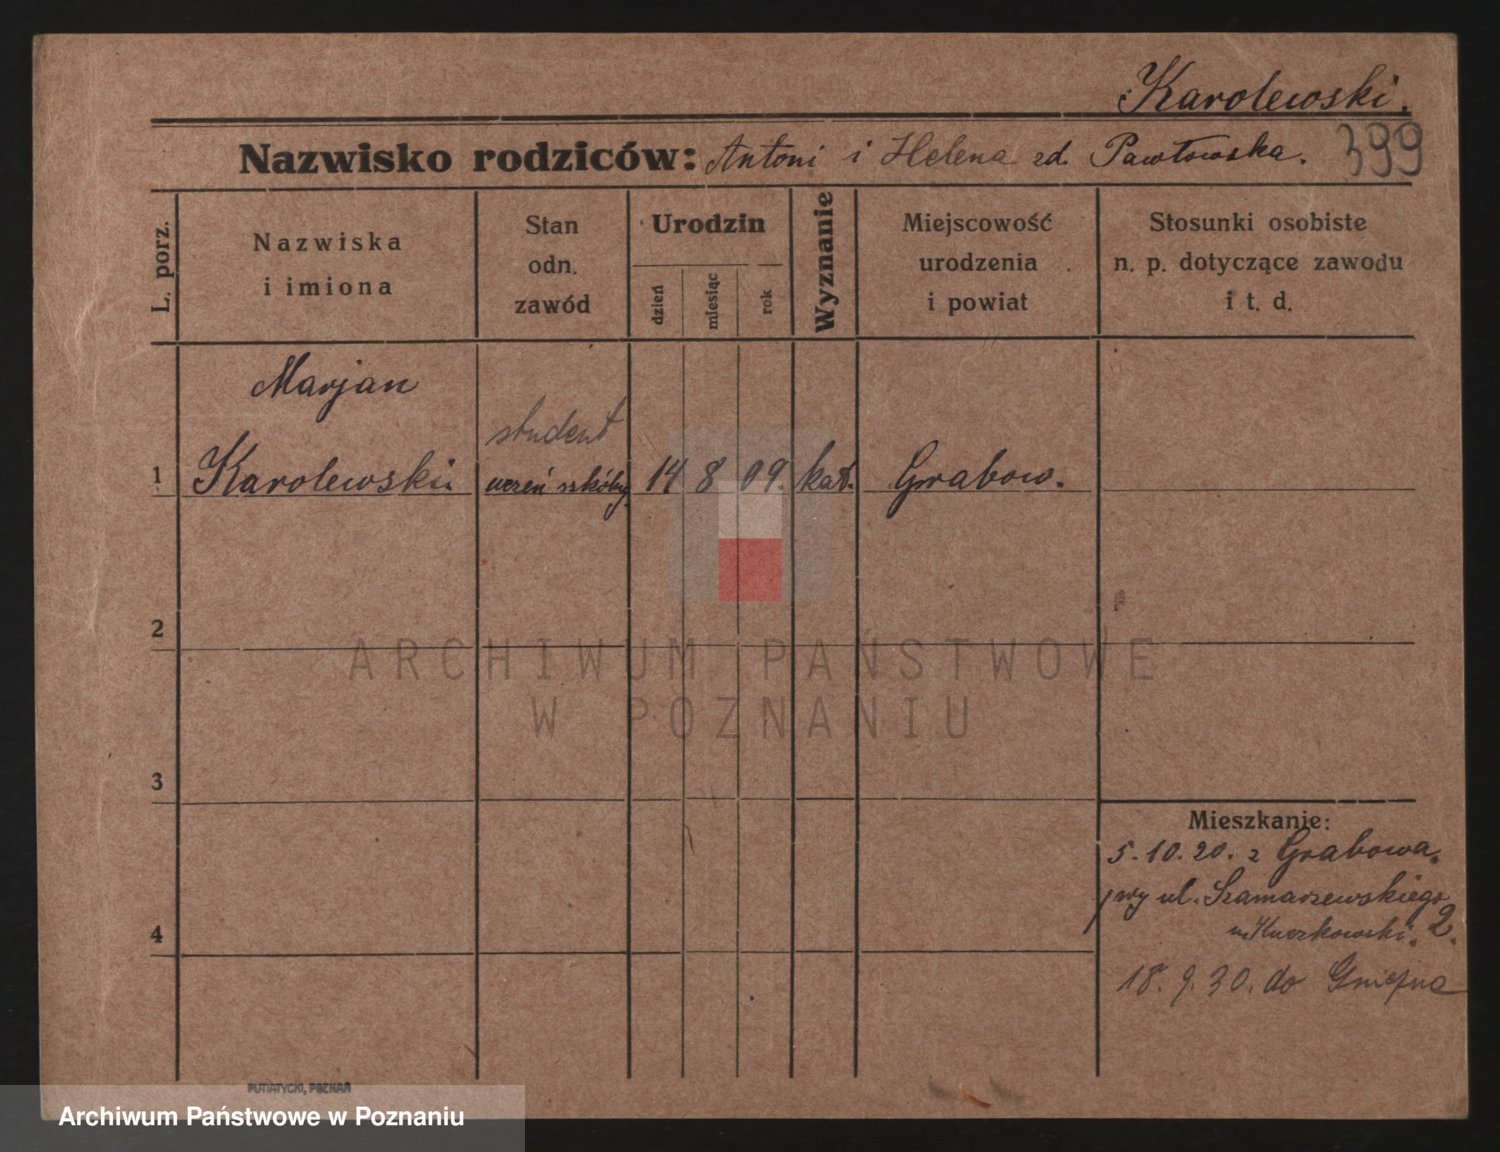 Karolewski.
Nazwisko rodziców: Antoni i Helena zd. Pawłowska. 399
L. porz.
Nazwiska
i imiona
Stan
odn.
zawód
Urodzin
dzień
miesiąc
rok
Wyznanie
Miejscowość
urodzenia
i powiat
Stosunki osobiste
n. p. dotyczące zawodu
i t. d.
Marjan
student
1 Karolewski. uczeń szkólny 14 8 09. kat. Grabow.
2
ARCHIWUM PAŃSTWOWE
W POZNANIU
3
Mieszkanie:
5.10.20. z Grabowa.
przy ul. Szamarzewskiego
4
u. Kuczkowski. 2.
18. 9. 30. do Gniezna
PUTIATYCKI, POZNAŃ
Archiwum Państwowe w Poznaniu